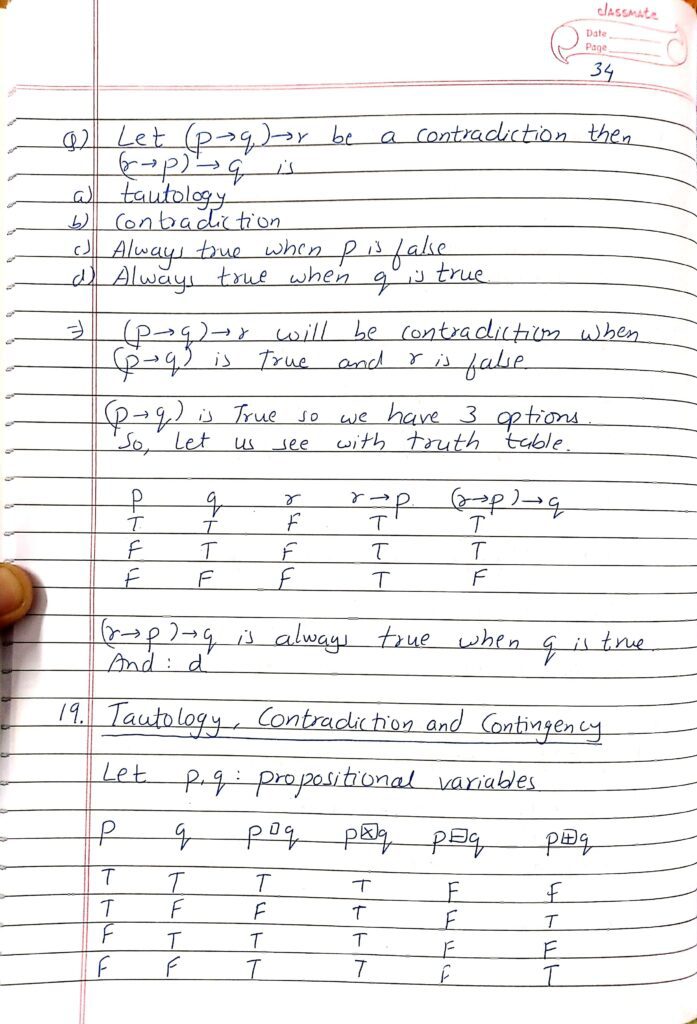 classmate
Date
Page
34
Q) Let (p→q)→r be a contradiction then
(r→p)→q is
a) tautology
b) contradiction
c) Always true when p is false
d) Always true when q is true
⇒ (p→q)→r will be contradiction when
(p→q) is True and r is false.
(p→q) is True so we have 3 options.
So, Let us see with truth table.
p q r r→p (r→p)→q
T T F T T
F T F T T
F F F T F
(r→p)→q is always true when q is true.
And : d
19. Tautology, Contradiction and Contingency
Let p,q : propositional variables
p q p□q p⊠q p⊟q p⊞q
T T T T F F
T F F T F T
F T T T F F
F F T T F T